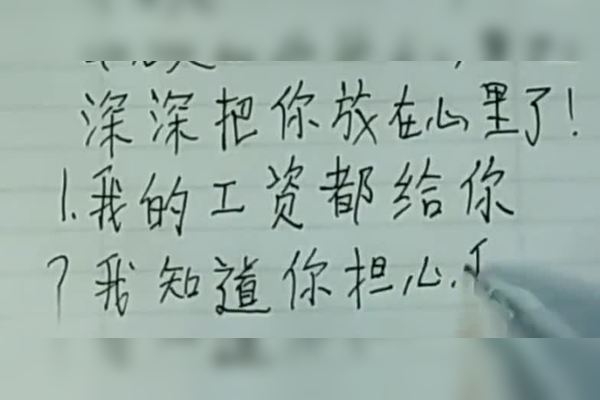 深深把你放在心里了!
1.我的工资都给你
?我知道你担心